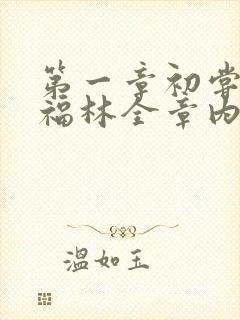 第一章初尝
福林全章内
温如玉